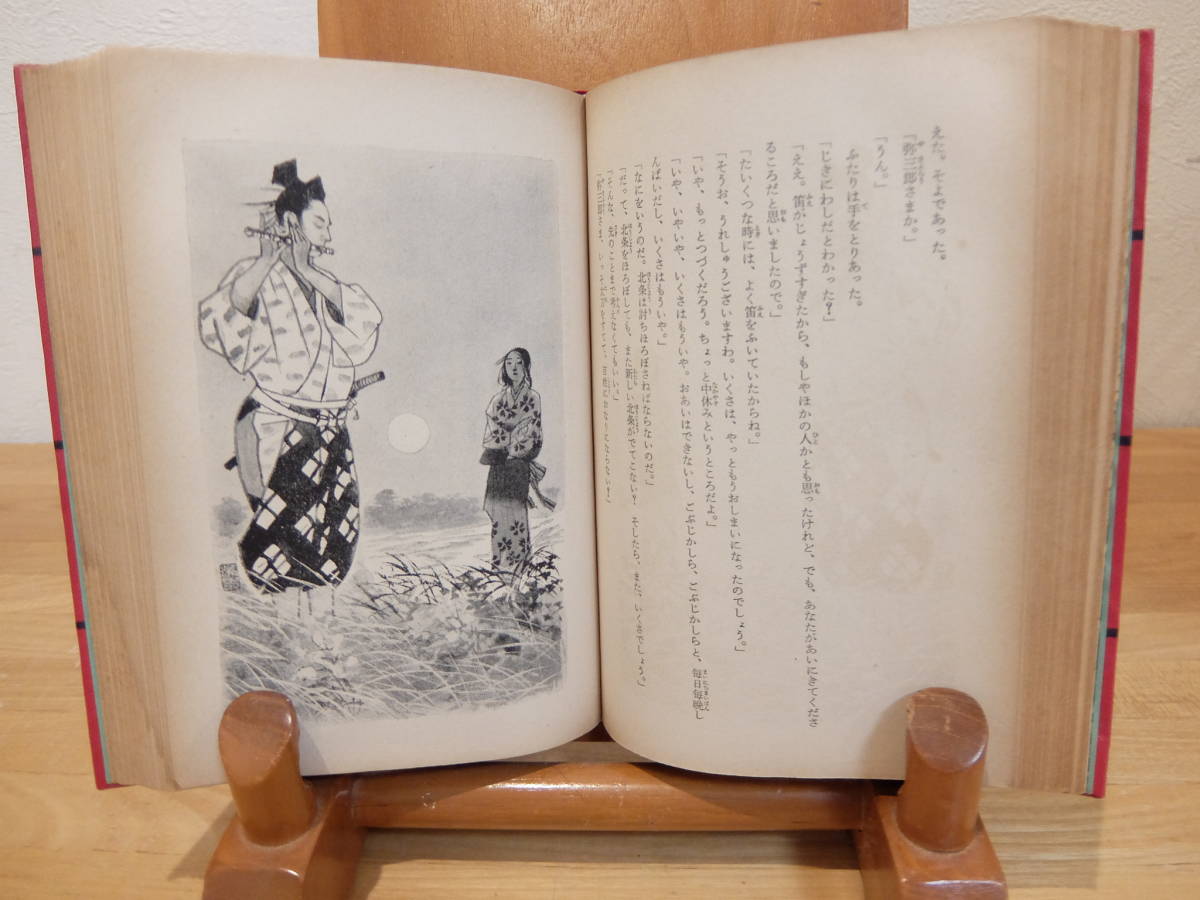 えた。そよであった。
「弥三郎さまか。」
「うん。」
ふたりは手をとりあった。
「じきにわしだとわかった？」
「ええ。笛がじょうずすぎたから、もしやほかの人かとも思ったけれど、でも、あなたがあいにきてくださ
るころだと思いましたので。」
「たいくつな時には、よく笛をふいていたからね。」
「そうお、うれしゅうございますわ。いくさは、やっともうおしまいになったのでしょう。」
「いや、もっとつづくだろう。ちょっと中休みというところだよ。」
「いや、いやいや、いくさはもういや。おあいはできないし、ごぶじかしら、ごぶじかしらと、毎日毎晩し
んぱいだし、いくさはもういや。」
「なにをいうのだ。北条は討ちほろぼさねばならないのだ。」
「だって、北条をほろぼしても、また新しい北条がでてこない？　そしたら、また、いくさでしょう。」
「そんな、先のことまで考えなくてもいい。」
「弥三郎さま、いっそ